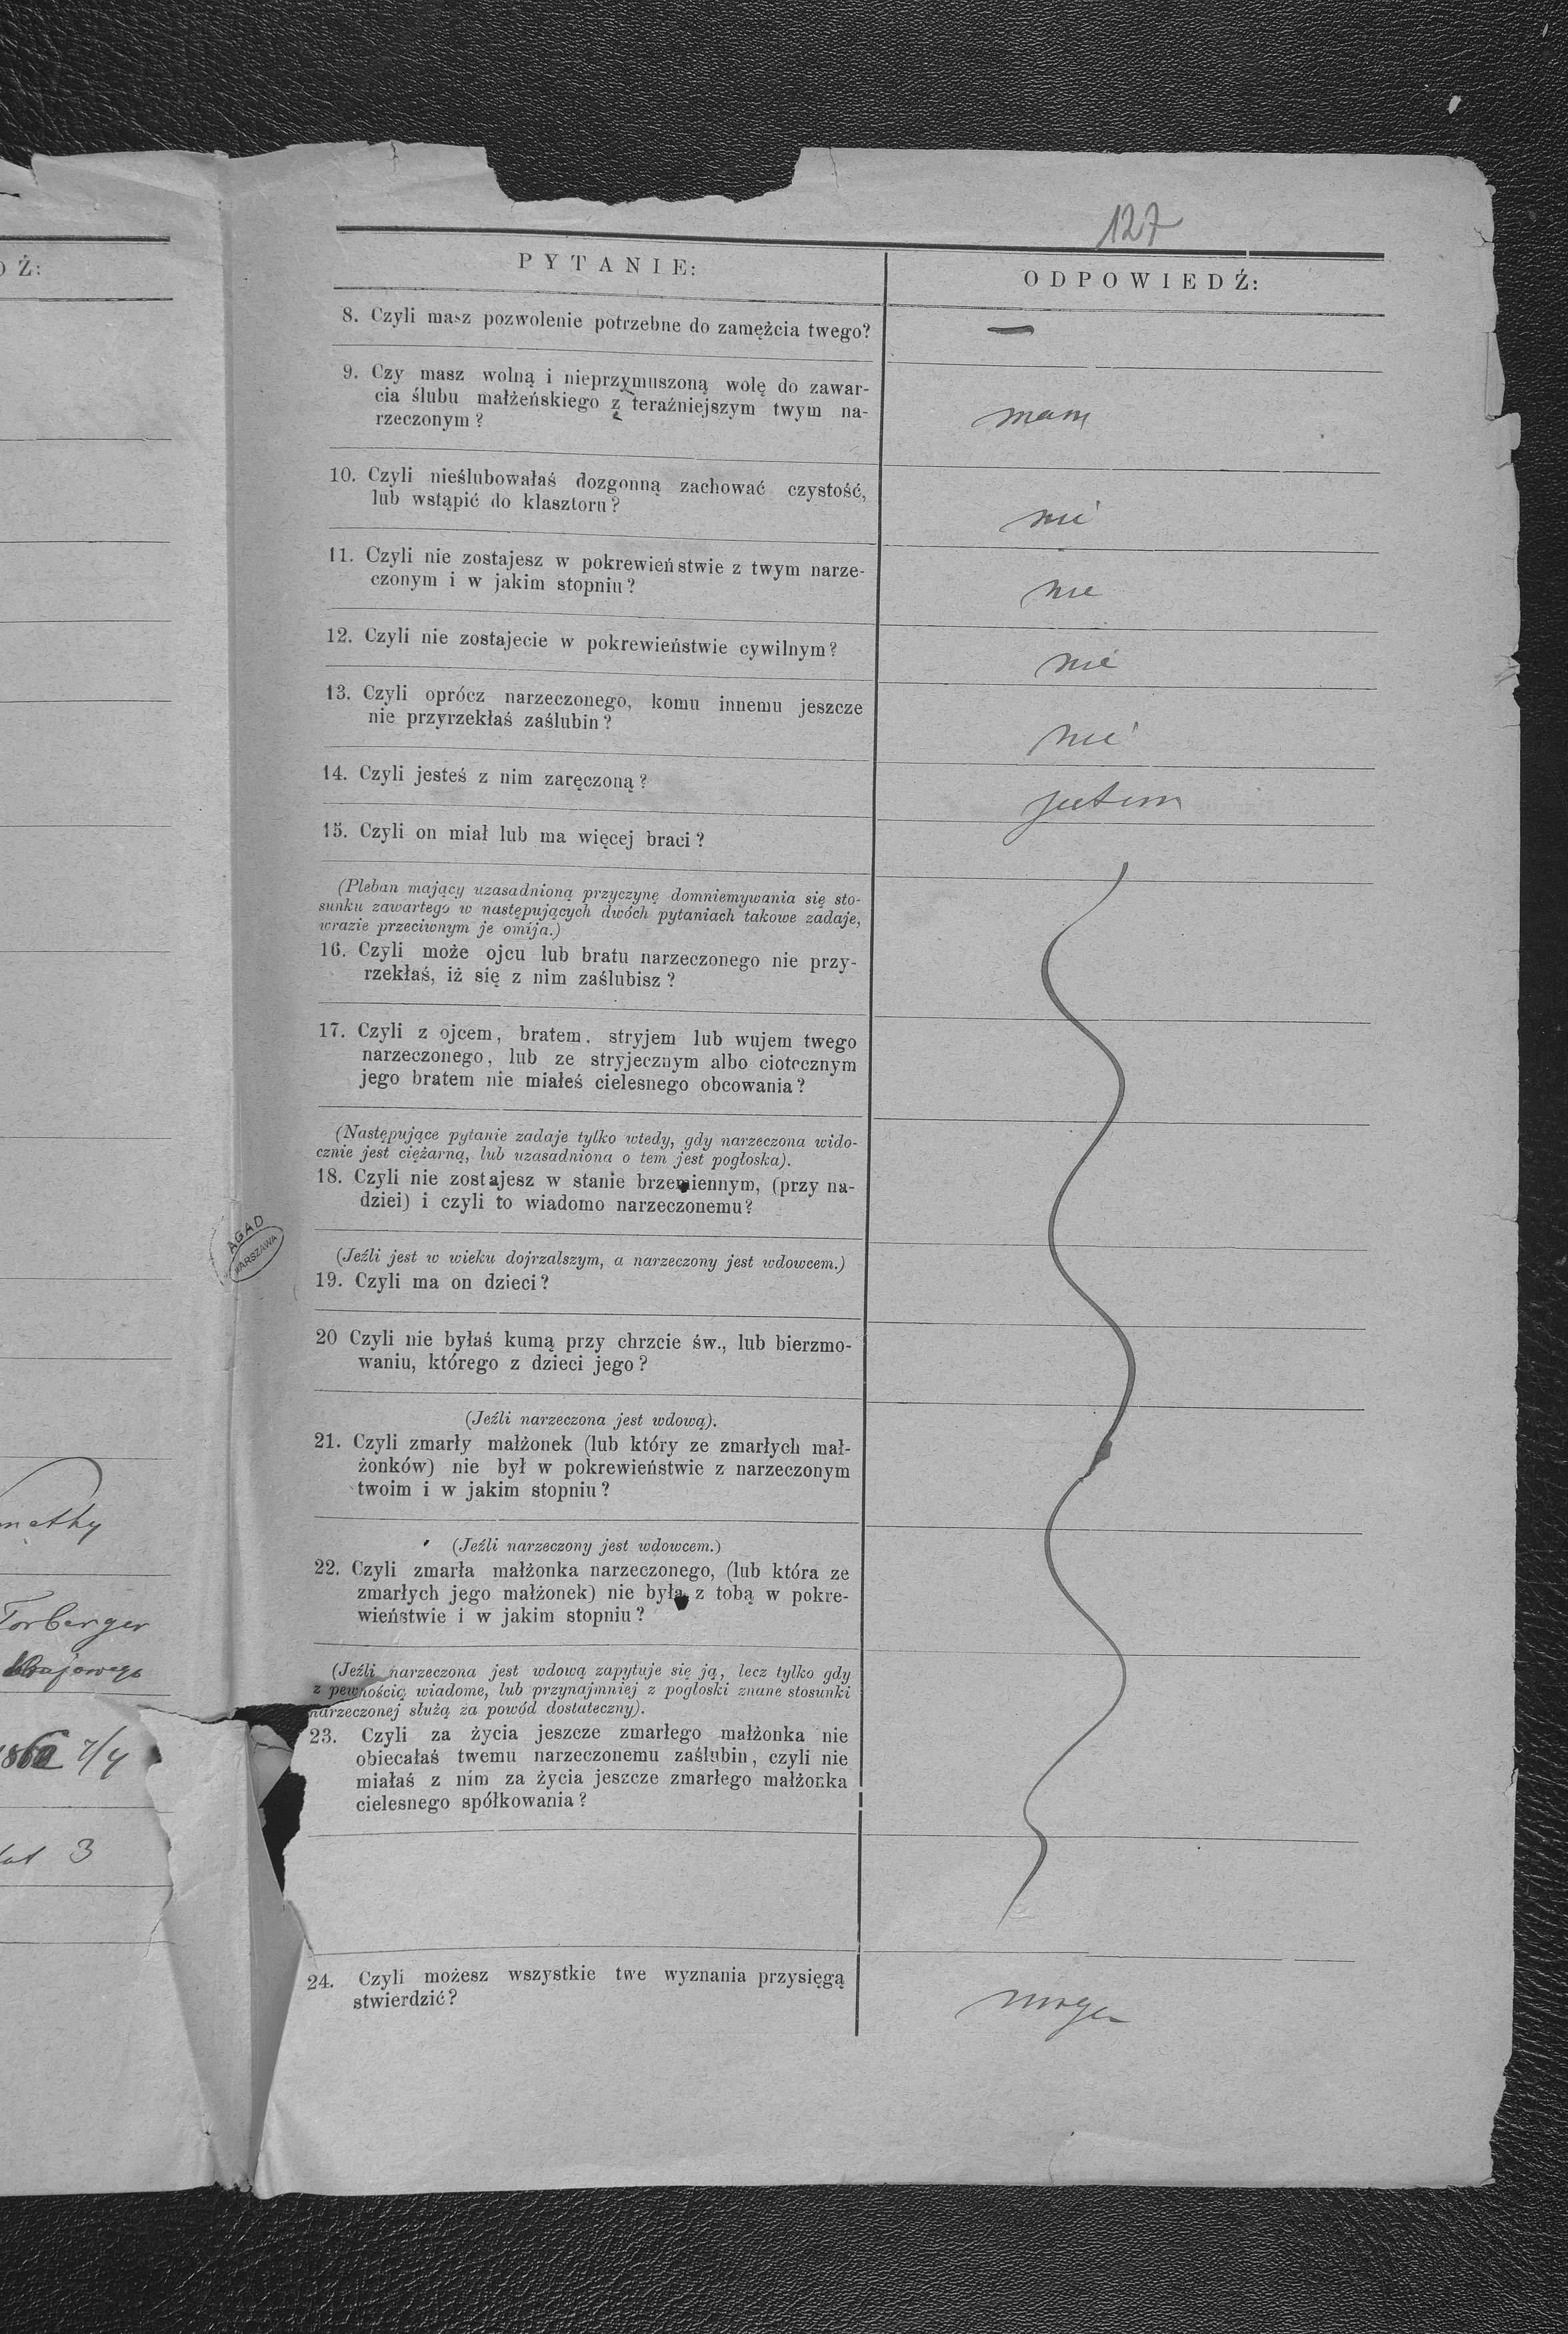 127
PYTANIE:
ODPOWIEDŹ:
8. Czyli masz pozwolenie potrzebne do zamężcia twego?
—
9. Czy masz wolną i nieprzymuszoną wolę do zawar-
cia ślubu małżeńskiego z teraźniejszym twym na-
rzeczonym?
mam
10. Czyli nieślubowałaś dozgonną zachować czystość,
lub wstąpić do klasztoru?
nie
11. Czyli nie zostajesz w pokrewieństwie z twym narze-
czonym i w jakim stopniu?
nie
12. Czyli nie zostajecie w pokrewieństwie cywilnym?
nie
13. Czyli oprócz narzeczonego, komu innemu jeszcze
nie przyrzekłaś zaślubin?
nie
14. Czyli jesteś z nim zaręczoną?
jestem
15. Czyli on miał lub ma więcej braci?
(Pleban mający uzasadnioną przyczynę domniemywania się sto-
sunku zawartego w następujących dwóch pytaniach takowe zadaje,
wrazie przeciwnym je omija.)
16. Czyli może ojcu lub bratu narzeczonego nie przy-
rzekłaś, iż się z nim zaślubisz?
17. Czyli z ojcem, bratem, stryjem lub wujem twego
narzeczonego, lub ze stryjecznym albo ciotecznym
jego bratem nie miałeś cielesnego obcowania?
(Następujące pytanie zadaje tylko wtedy, gdy narzeczona wido-
cznie jest ciężarną, lub uzasadniona o tem jest pogłoska).
18. Czyli nie zostajesz w stanie brzemiennym, (przy na-
dziei) i czyli to wiadomo narzeczonemu?
(Jeźli jest w wieku dojrzalszym, a narzeczony jest wdowcem.)
19. Czyli ma on dzieci?
20 Czyli nie byłaś kumą przy chrzcie św., lub bierzmo-
waniu, którego z dzieci jego?
(Jeźli narzeczona jest wdową).
21. Czyli zmarły małżonek (lub który ze zmarłych mał-
żonków) nie był w pokrewieństwie z narzeczonym
twoim i w jakim stopniu?
(Jeźli narzeczony jest wdowcem.)
22. Czyli zmarła małżonka narzeczonego, (lub która ze
zmarłych jego małżonek) nie była z tobą w pokre-
wieństwie i w jakim stopniu?
(Jeźli narzeczona jest wdową zapytuje się ją, lecz tylko gdy
z pewnością wiadome, lub przynajmniej z pogłoski znane stosunki
narzeczonej służą za powód dostateczny).
23. Czyli za życia jeszcze zmarłego małżonka nie
obiecałaś twemu narzeczonemu zaślubin, czyli nie
miałaś z nim za życia jeszcze zmarłego małżonka
cielesnego spółkowania?
24. Czyli możesz wszystkie twe wyznania przysięgą
stwierdzić?
mogę
AGAD
WARSZAWA
Ź:
Torberger
Krajowego
lat 3